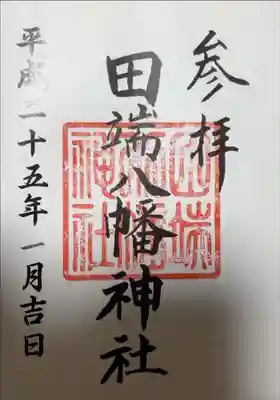 参拝
田端八幡神社
平成二十五年一月吉日
田端八幡神社